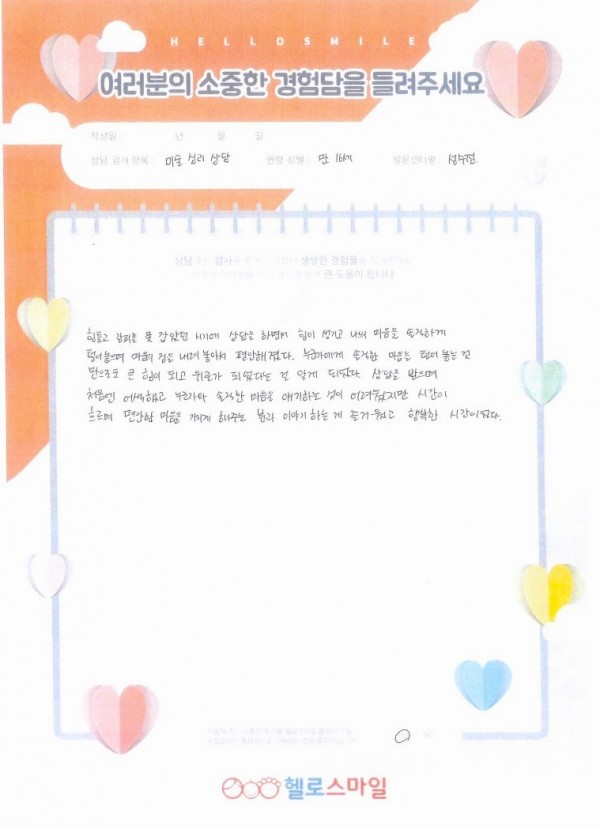 HELLOSMILE
여러분의 소중한 경험담을 들려주세요
작성일 : 년 월 일
상담 검사 항목 : 미술 심리 상담 연령 성별 : 만 16세 방문센터명 :
상담 검사 생생한 경험들을
큰 도움이 됩니다
힘들고 갈피를 못 잡았던 시기에 상담을 하면서 힘이 생기고 나의 마음을 솔직하게
털어놓으며 마음의 짐을 내려 놓아서 편안해졌다. 누군가에게 솔직한 마음을 털어 놓는 것
만으로도 큰 힘이 되고 위로가 되었다는 걸 알게 되었다 상담을 받으며
처음엔 어색했고 누군가와 솔직한 마음을 얘기하는 것이 어려웠지만 시간이
흐르며 편안한 마음을 가지게 해주는 분과 이야기하는게 즐거웠고 행복한 시간이었다.
헬로스마일